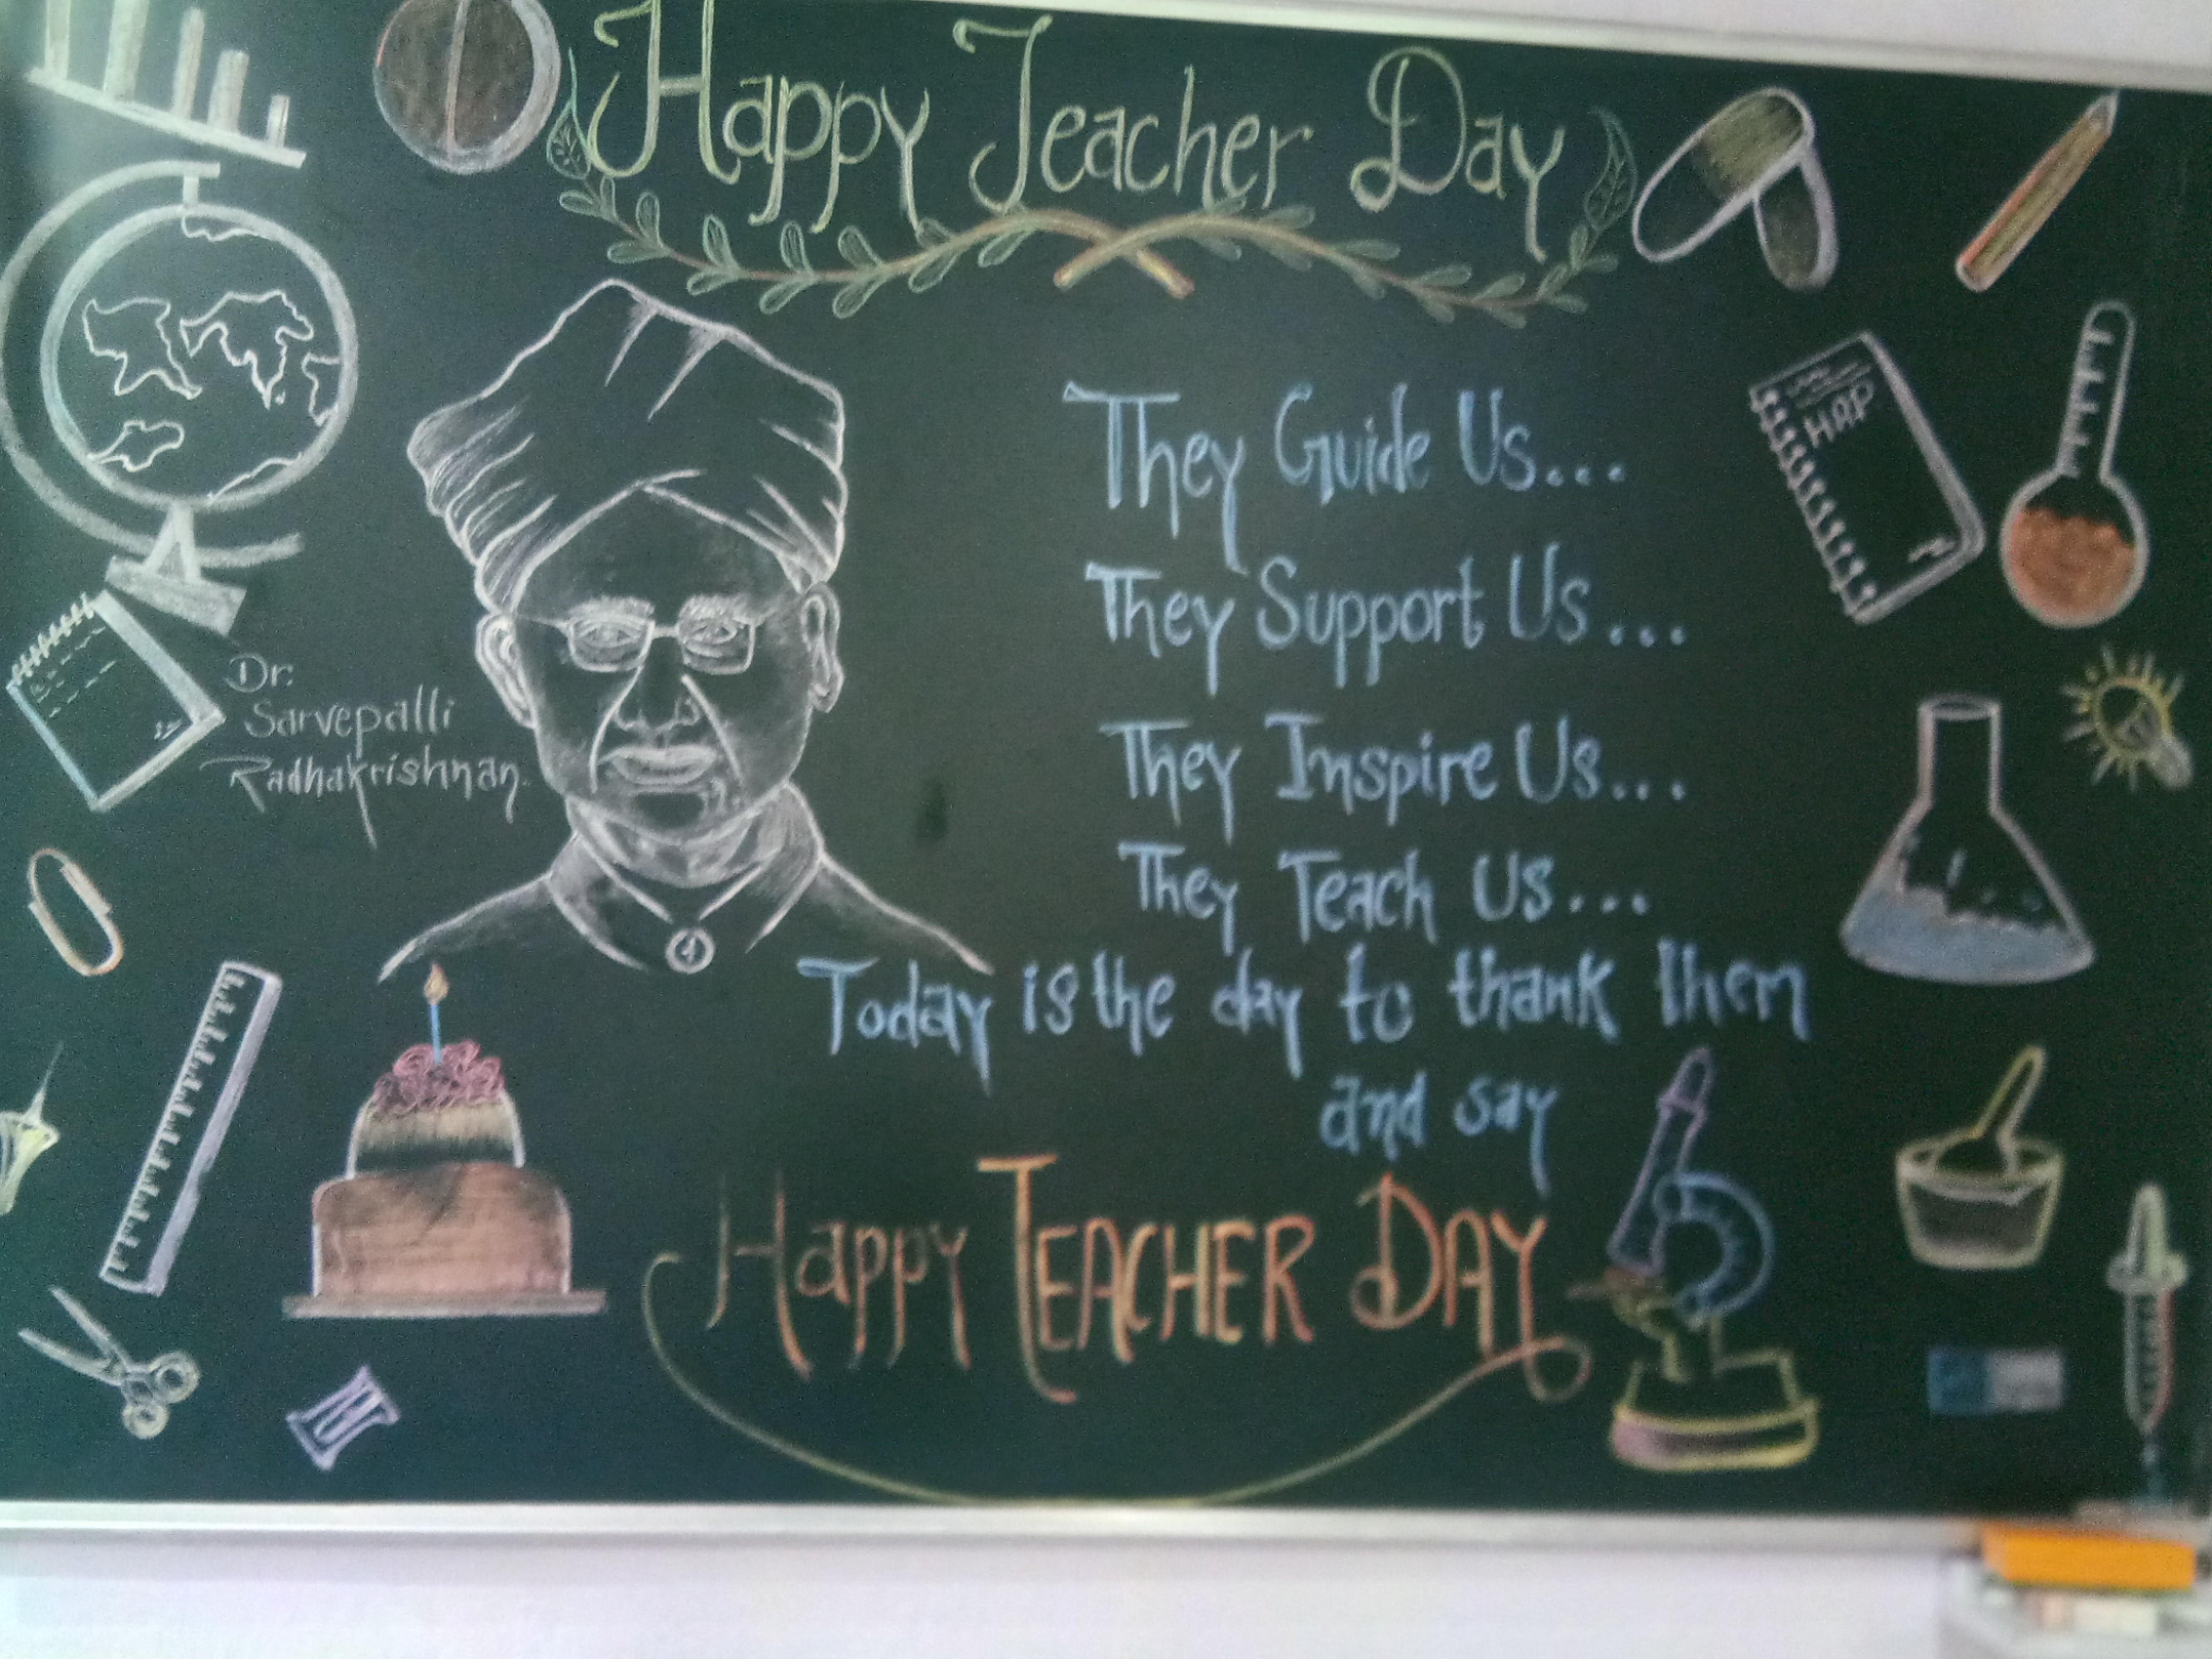 Happy Teacher Day
They Guide Us...
HAP
They Support Us...
Dr.
Sarvepalli
Radhakrishnan.
They Inspire Us...
They Teach Us...
Today is the day to thank them
and say
Happy TEACHER DAY